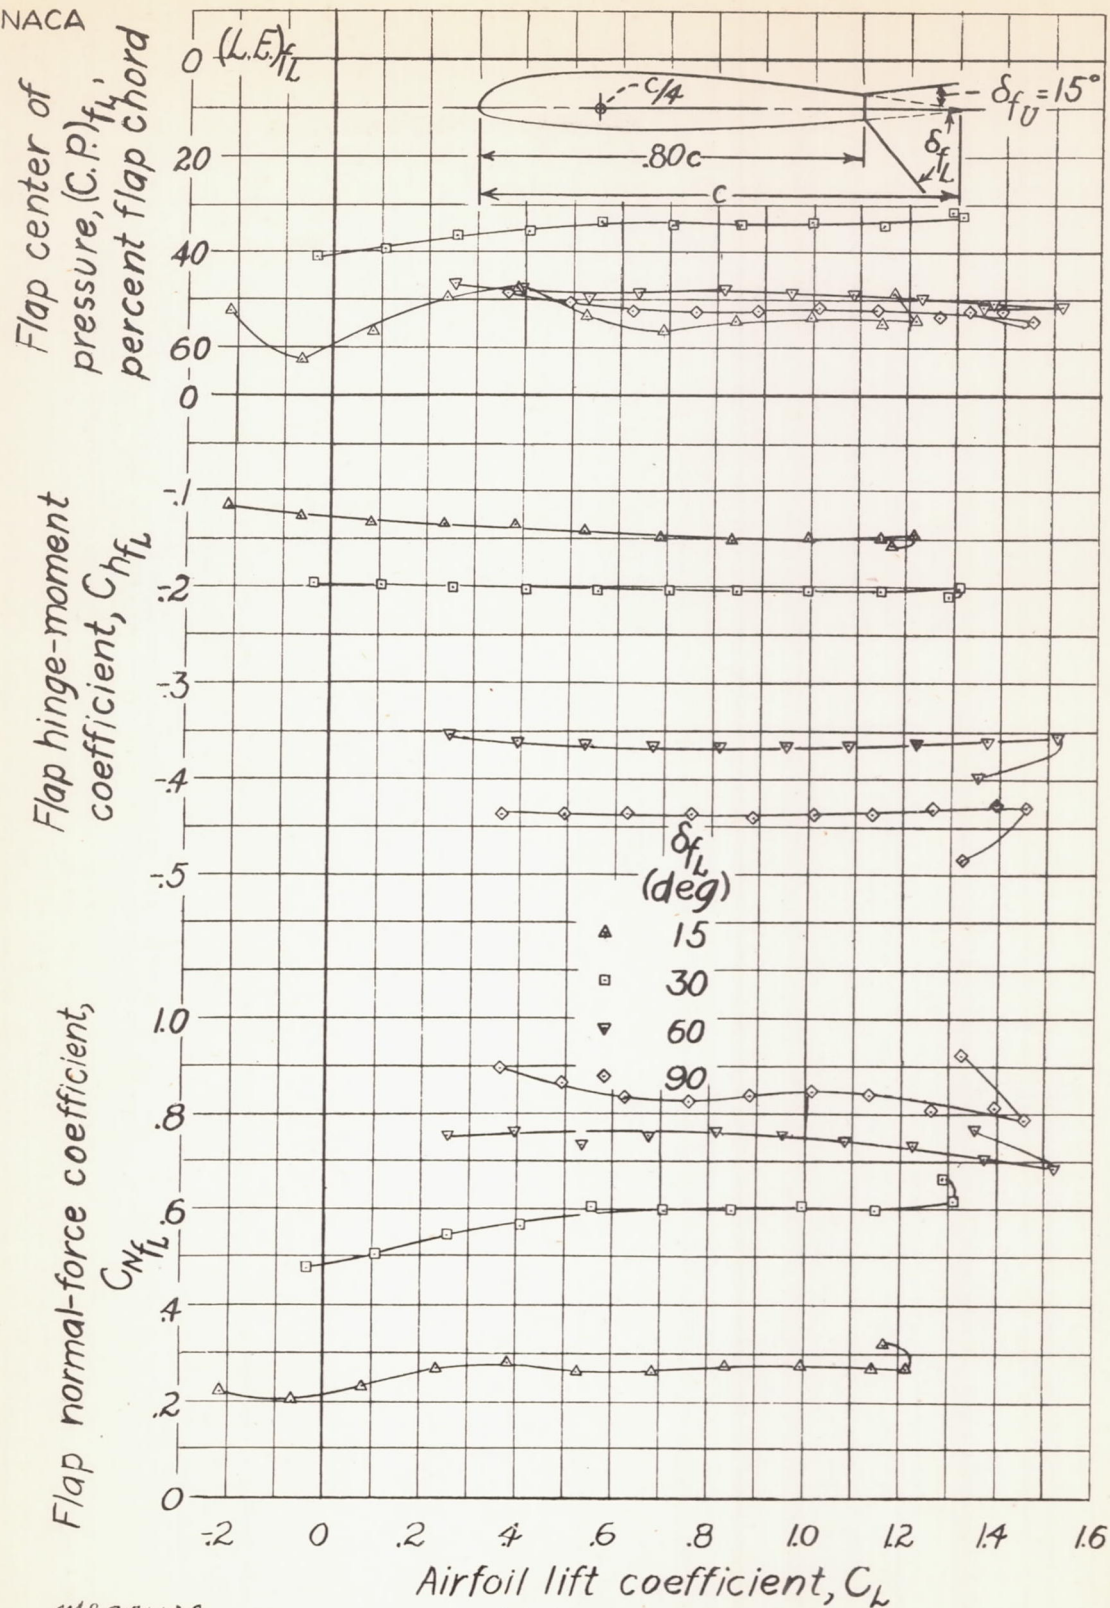 NACA
Flap center of
pressure, (C.P.)fL,
percent flap chord
0 (L.E.)fL
20
40
60
c/4
δfU = 15°
δfL
.80c
c
Flap hinge-moment
coefficient, ChfL
0
-.1
-.2
-.3
-.4
-.5
δfL
(deg)
15
30
60
90
Flap normal-force coefficient,
CNfL
1.0
.8
.6
.4
.2
0
-.2 0 .2 .4 .6 .8 1.0 1.2 1.4 1.6
Airfoil lift coefficient, CL